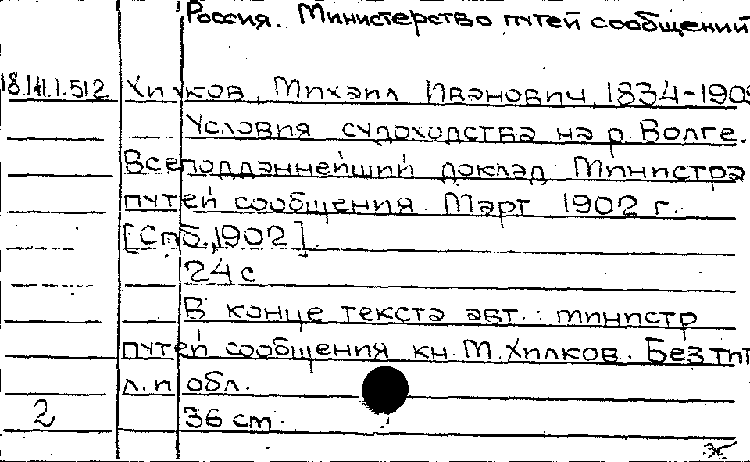 Россия. Министерство путей сообщений
18.141.1.512 Хилков, Михаил Иванович, 1834-190
Условия судоходства на р. Волге.
Всеподданнейший доклад Министра
путей сообщения. Март 1902 г.
[Спб., 1902].
24 с
В конце текста авт.: министр
путей сообщения кн. М. Хилков. Без тит
л. и обл.
2 36 см.